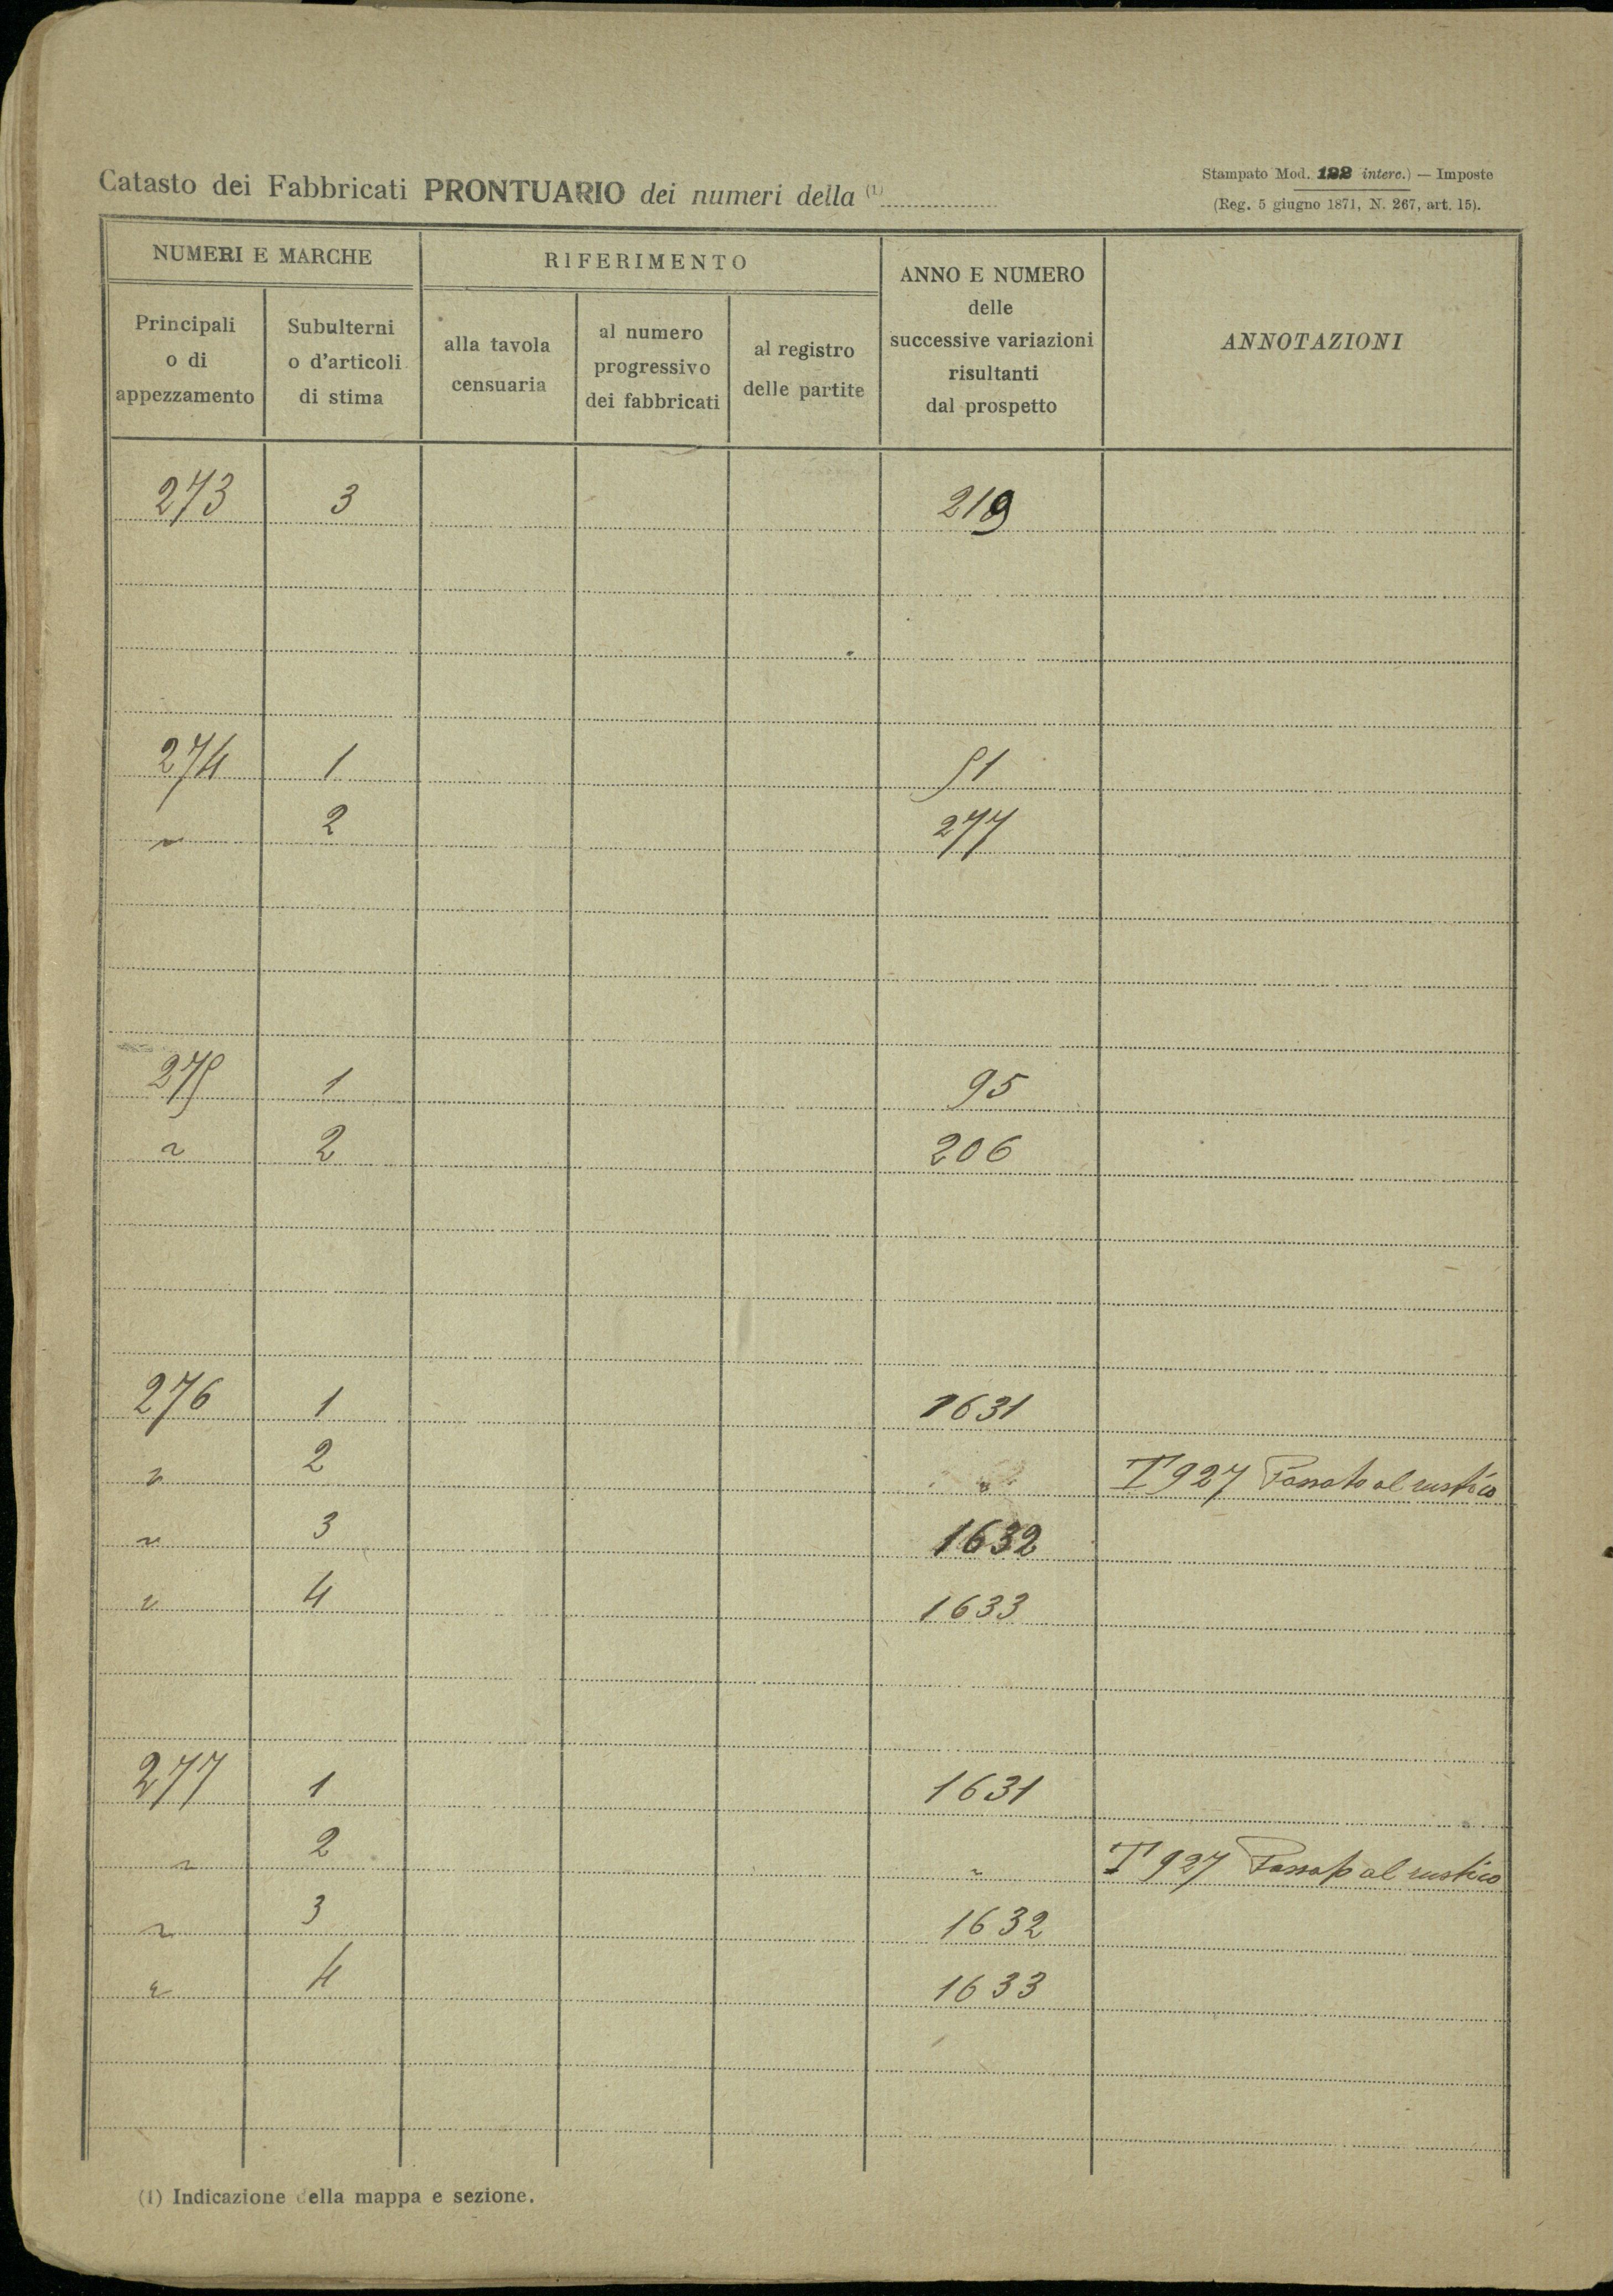 Catasto dei Fabbricati PRONTUARIO dei numeri della (1)
Stampato Mod. 122 interc.) — Imposte
(Reg. 5 giugno 1871, N. 267, art. 15).
NUMERI E MARCHE
RIFERIMENTO
ANNO E NUMERO
delle
successive variazioni
risultanti
dal prospetto
ANNOTAZIONI
Principali
o di
appezzamento
Subulterni
o d'articoli
di stima
alla tavola
censuaria
al numero
progressivo
dei fabbricati
al registro
delle partite
273 3 219
274 1 51
" 2 277
275 1 95
" 2 206
276 1 1631
" 2 " T 927 Passato al rustico
" 3 1632
" 4 1633
277 1 1631
" 2 " T 927 Passato al rustico
" 3 1632
" 4 1633
(1) Indicazione della mappa e sezione.